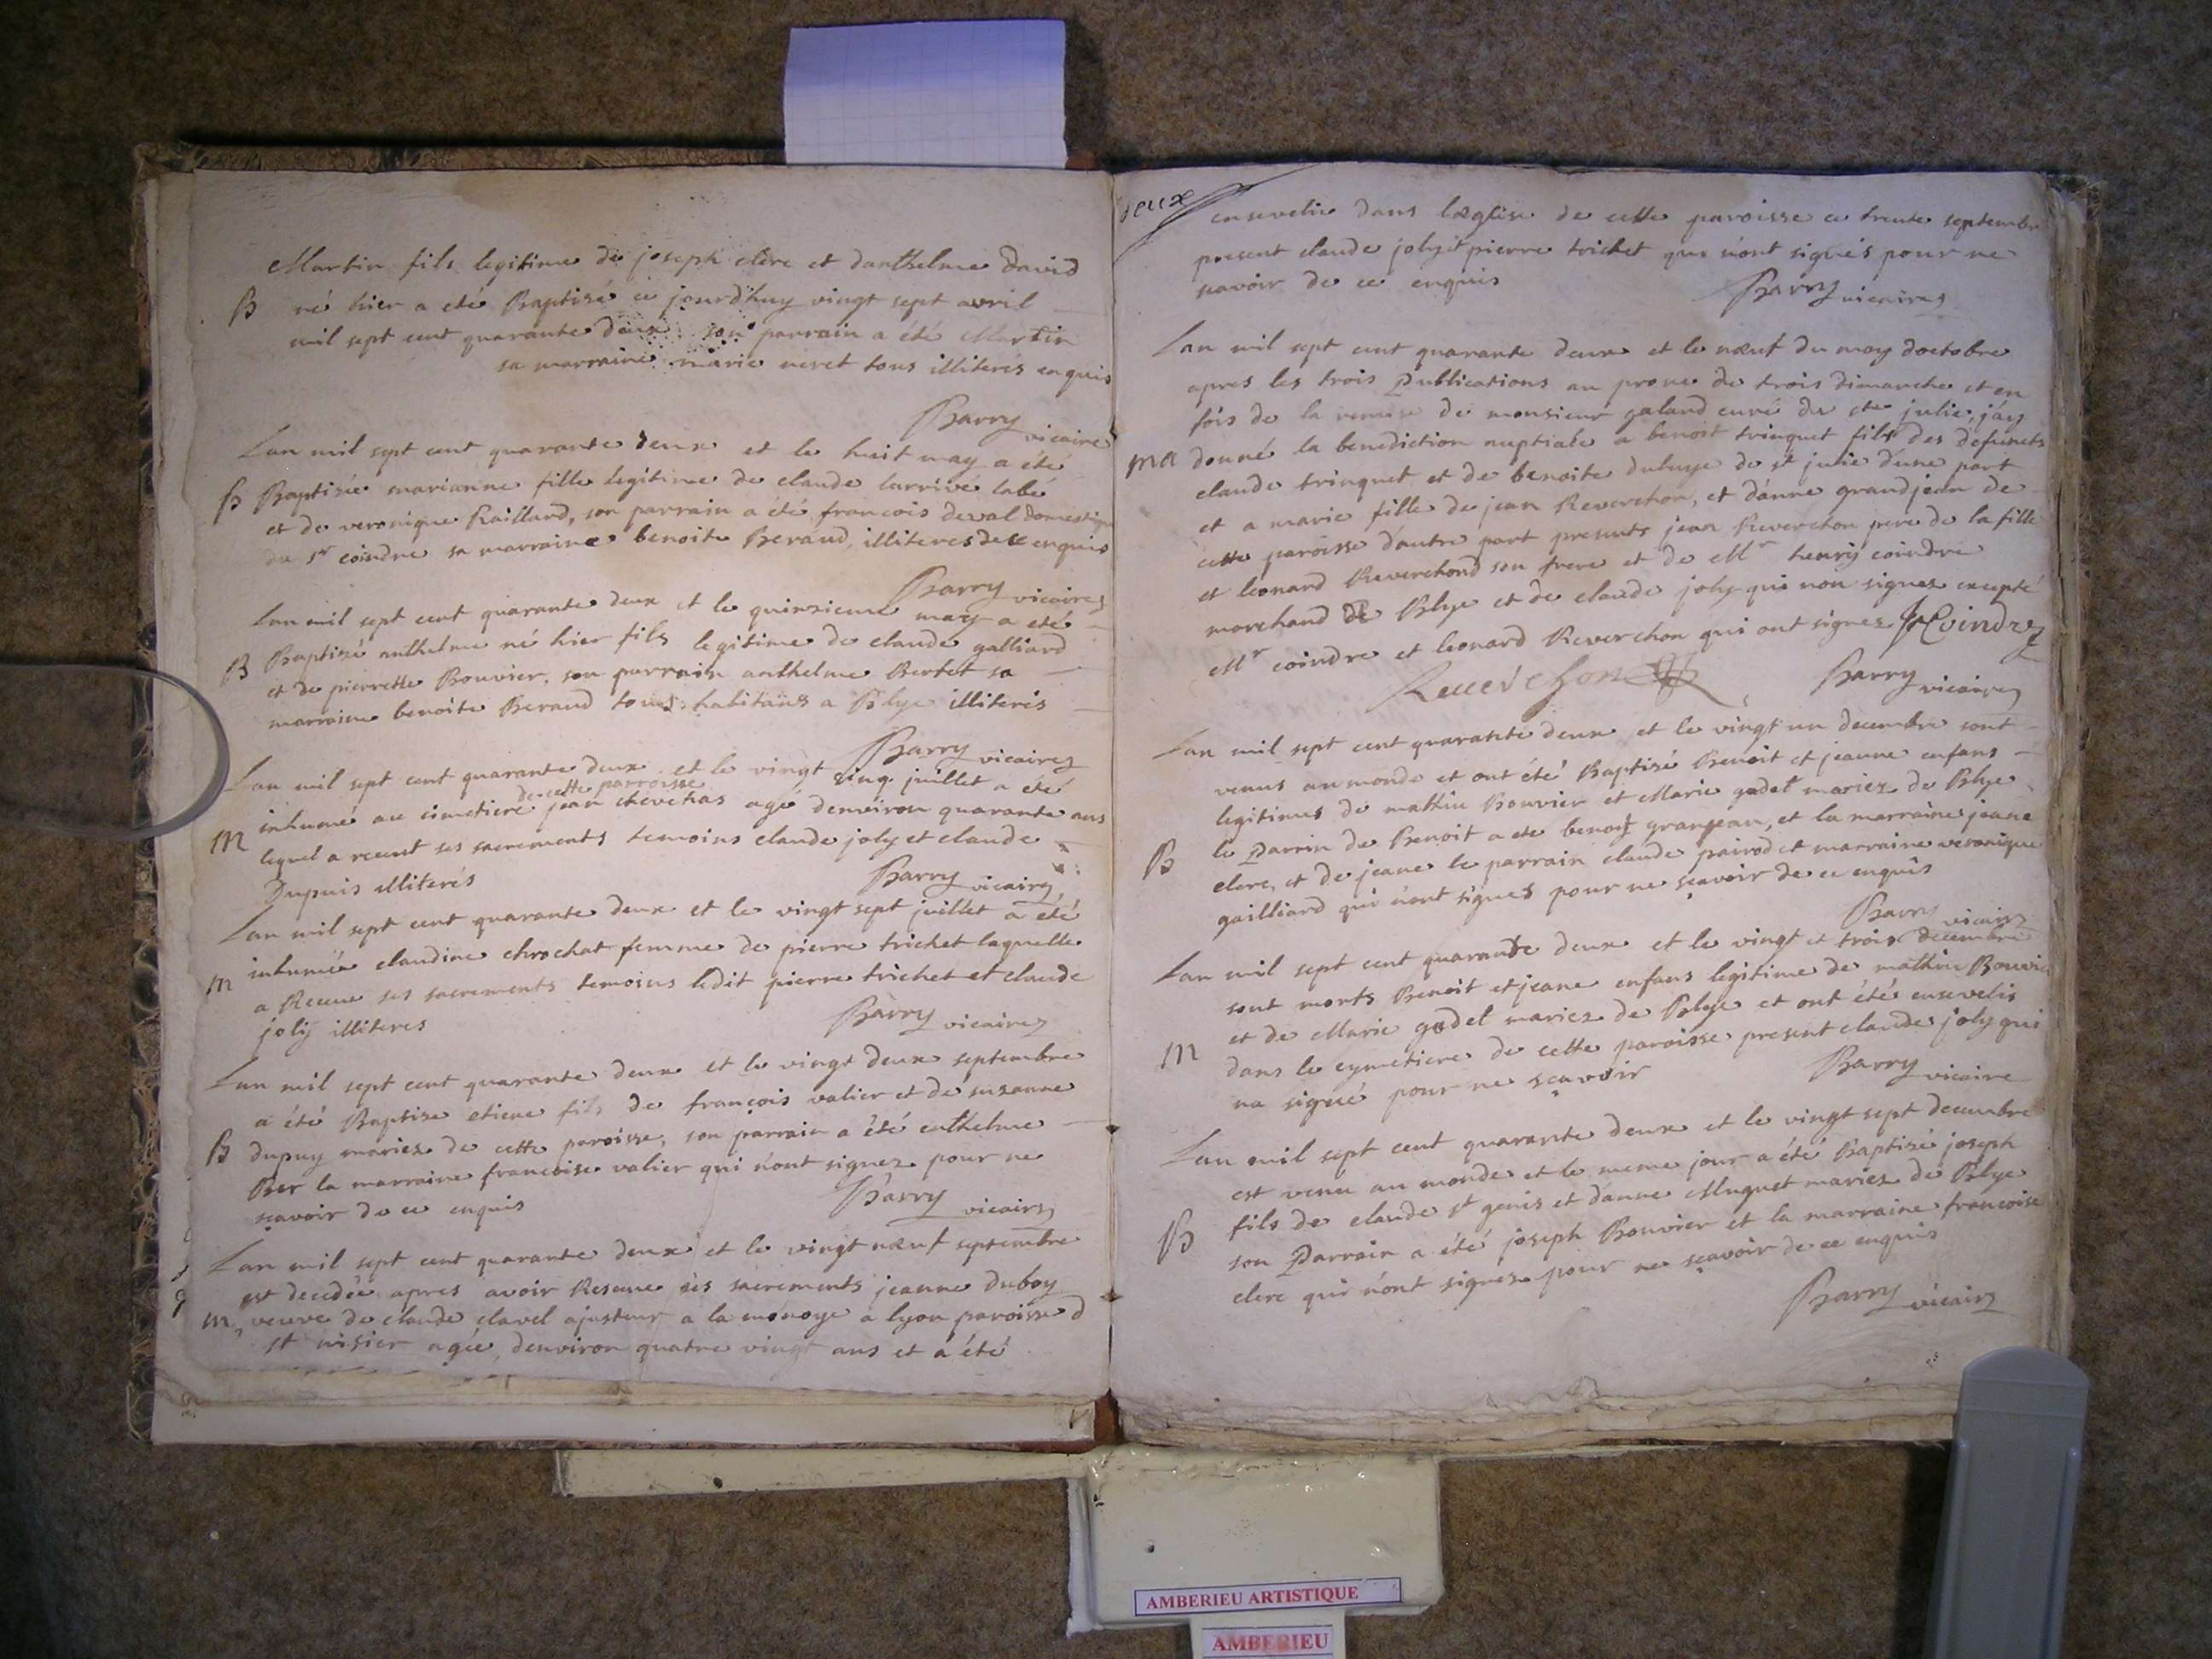 Martin fils legitime de joseph clerc et danthelme david
B né hier a eté Baptisé ce jourdhuy vingt sept avril
mil sept cent quarante deux son parrain a été Martin
sa marraine marie neret tous illiterés enquis
Barry vicaire
Lan mil sept cent quarante deux et le huit may a été
B Baptisée marianne fille legitime de claude larrivé labé
et de veronique Gaillard, son parrain a été francois deval domestique
du sr coindre sa marraine benoite Beraud, illiteres de ce enquis
Barry vicaire
Lan mil sept cent quarante deux et le quinzieme may a eté
B Baptisé anthelme né hier fils legitime de claude galliard
et de pierrette Bouvier, son parrain anthelme Bertet sa
marraine benoite Beraud tous habitans a Blye illiterés
Barry vicaire
Lan mil sept cent quarante deux et le vingt cinq juillet a été
de cette parroisse
M inhumé au cimetiere jean chevetias agé denviron quarante ans
lequel a receut ses sacrements temoins claude joly et claude
Dupuis illiterés
Barry vicaire
Lan mil sept cent quarante deux et le vingt sept juillet a été
M inhumée claudine chrochat femme de pierre trichet laquelle
a Receue ses sacrements temoins ledit pierre trichet et claude
joly illiteres
Barry vicaire
Lan mil sept cent quarante deux et le vingt deux septembre
a été Baptise etiene fils de françois valier et de suzanne
B dupuy mariez de cette paroisse, son parrain a été enthelme
Ber la marraine francoise valier qui n'ont signez pour ne
sçavoir de ce enquis
Barry vicaire
Lan mil sept cent quarante deux et le vingt nœuf septembre
est decedée apres avoir Reseue ses sacrements jeanne duboy
M veuve de claude clavel ajusteur a la monoye a lyon paroisse d
st nisier agée denviron quatre vingt ans et a été
deux
ensevelie dans læglise de cette paroisse ce trente septembre
present claude joly et pierre trichet qui n'ont signés pour ne
scavoir de ce enquis
Barry vicaire
Lan mil sept cent quarante deux et le nœuf du moy doctobre
apres les trois Publications au prone de trois dimanche et en
fois de la remise de monsieur galand curé de ste julie, jay
Ma donné la benediction nuptiale a benoit trinquet fils des defuncts
claude trinquet et de benoite duluye de st julie d'une part
et a marie fille de jean Reverchon, et d'anne grandjean de
cette paroisse d'autre part presents jean Reverchon pere de la fille
et leonard Reverchond son frere et de Mr henry coindre
marchand de Blye et de claude joly qui non signez excepté
Mr coindre et leonard Reverchon qui ont signez HCoindre
Reuerchon
Barry vicaire
Lan mil sept cent quarante deux et le vingt un decembre sont
venus au monde et ont été Baptisé Benoit et jeanne enfans
legitimes de mathieu Bouvier et Marie godet mariez de Blye
B le Parrin de Benoit a ete benoit granjean, et la marraine jeane
clerc, et de jeane le parrain claude pairod et marraine veronique
gailliard qui n'ont signes pour ne sçavoir de ce enquis
Barry vicaire
Lan mil sept cent quarante deux et le vingt et trois decembre
sont morts Benoit et jeane enfans legitime de mathieu Bouvie
et de Marie godet mariez de Blye et ont été ensevelis
M dans le cymetiere de cette paroisse present claude joly qui
na signé pour ne sçavoir
Barry vicaire
Lan mil sept cent quarante deux et le vingt sept decembre
est venu au monde et le meme jour a été Baptisé joseph
B fils de claude st genis et danne Muguet mariez de Blye
son Parrain a été joseph Bouvier et la marraine francoise
clerc qui n'ont signez pour ne sçavoir de ce enquis
Barry vicaire
AMBERIEU ARTISTIQUE
AMBERIEU